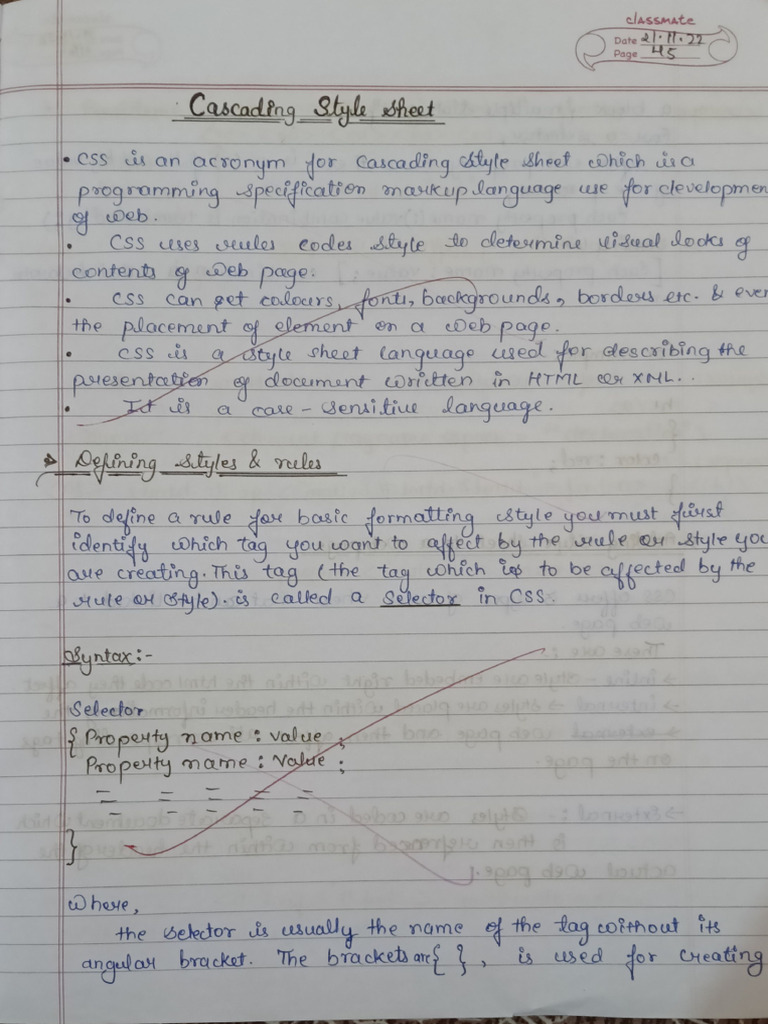 classmate
Date 21.11.22
Page 45
Cascading Style Sheet
• CSS is an acronym for Cascading Style Sheet which is a
programming specification markup language use for developmen
of web.
• CSS uses rules codes style to determine visual looks of
contents of web page.
• CSS can set colours, fonts, backgrounds, borders etc. & even
the placement of element on a web page.
• CSS is a style sheet language used for describing the
presentation of document written in HTML or XML..
• It is a case-sensitive language.
Defining styles & rules
To define a rule for basic formatting style you must first
identify which tag you want to affect by the rule or style you
are creating. This tag (the tag which is to be affected by the
rule or style). is called a selector in CSS.
Syntax:-
Selector
{ Property name : value ;
Property name : value ;
}
Where,
the selector is usually the name of the tag without its
angular bracket. The brackets are { }, is used for creating